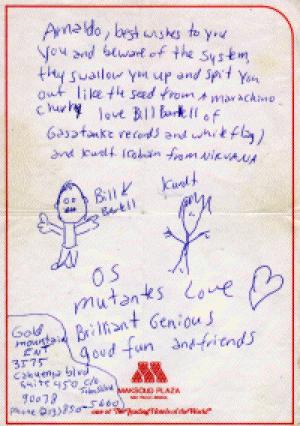 Arnaldo, best wishes to you
You and beware of the System,
they swallow you up and spit you
out like the seed from A marachino
cherry love Bill Bartell of
Gasatanka records and white flag)
and Kurdt Kobain from NIRVANA
Bill
Bartell
Kurdt
OS
mutantes Love
Brilliant Genious
good fun and friends
Gold
mountain
ENT
3575
Cahuenga blvd
Suite 450 c/o
90078
Phone (213) 850-5660
MAKSOUD PLAZA
SÃO PAULO, BRASIL
one of "The Leading Hotels of the World"